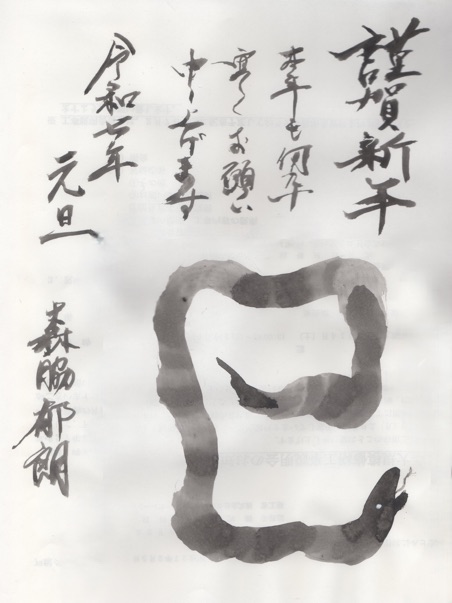 謹賀新年
本年も何卒
宜しくお願い
申し上げます
令和七年
元旦
森脇郁朗
巳